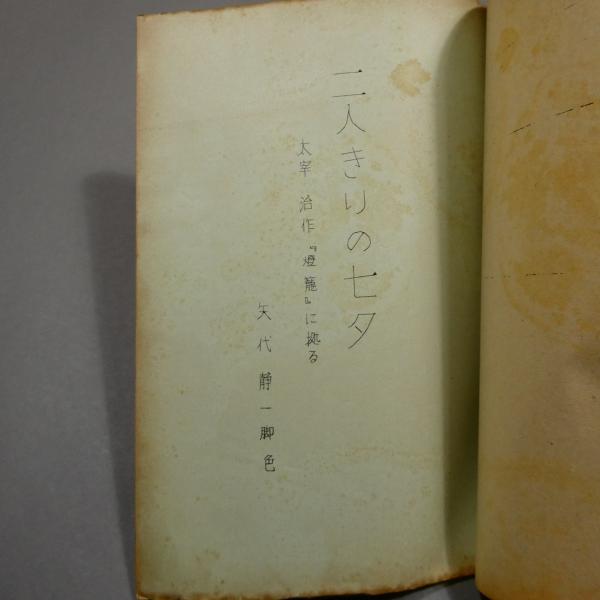 二人きりの七夕
太宰 治作『燈籠』に拠る
矢代 静一 脚色